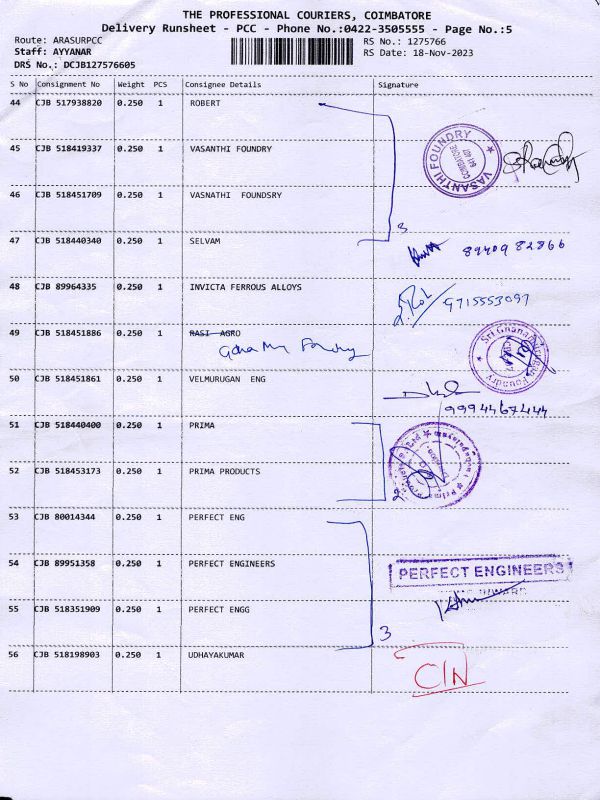 THE PROFESSIONAL COURIERS, COIMBATORE
Delivery Runsheet - PCC - Phone No.:0422-3505555 - Page No.:5
Route: ARASURPCC RS No.: 1275766
Staff: AYYANAR RS Date: 18-Nov-2023
DRS No.: DCJB127576605
S No Consignment No Weight PCS Consignee Details Signature
44 CJB 517938820 0.250 1 ROBERT
45 CJB 518419337 0.250 1 VASANTHI FOUNDRY
VASANTHI FOUNDRY COIMBATORE 641 407
46 CJB 518451709 0.250 1 VASNATHI FOUNDSRY
3
47 CJB 518440340 0.250 1 SELVAM
8940982866
48 CJB 89964335 0.250 1 INVICTA FERROUS ALLOYS
9715553097
49 CJB 518451886 0.250 1 RASI AGRO
Foundry
50 CJB 518451861 0.250 1 VELMURUGAN ENG
9994467444
51 CJB 518440400 0.250 1 PRIMA
52 CJB 518453173 0.250 1 PRIMA PRODUCTS
53 CJB 80014344 0.250 1 PERFECT ENG
54 CJB 89951358 0.250 1 PERFECT ENGINEERS
PERFECT ENGINEERS
55 CJB 518351909 0.250 1 PERFECT ENGG
3
56 CJB 518198903 0.250 1 UDHAYAKUMAR
CIN